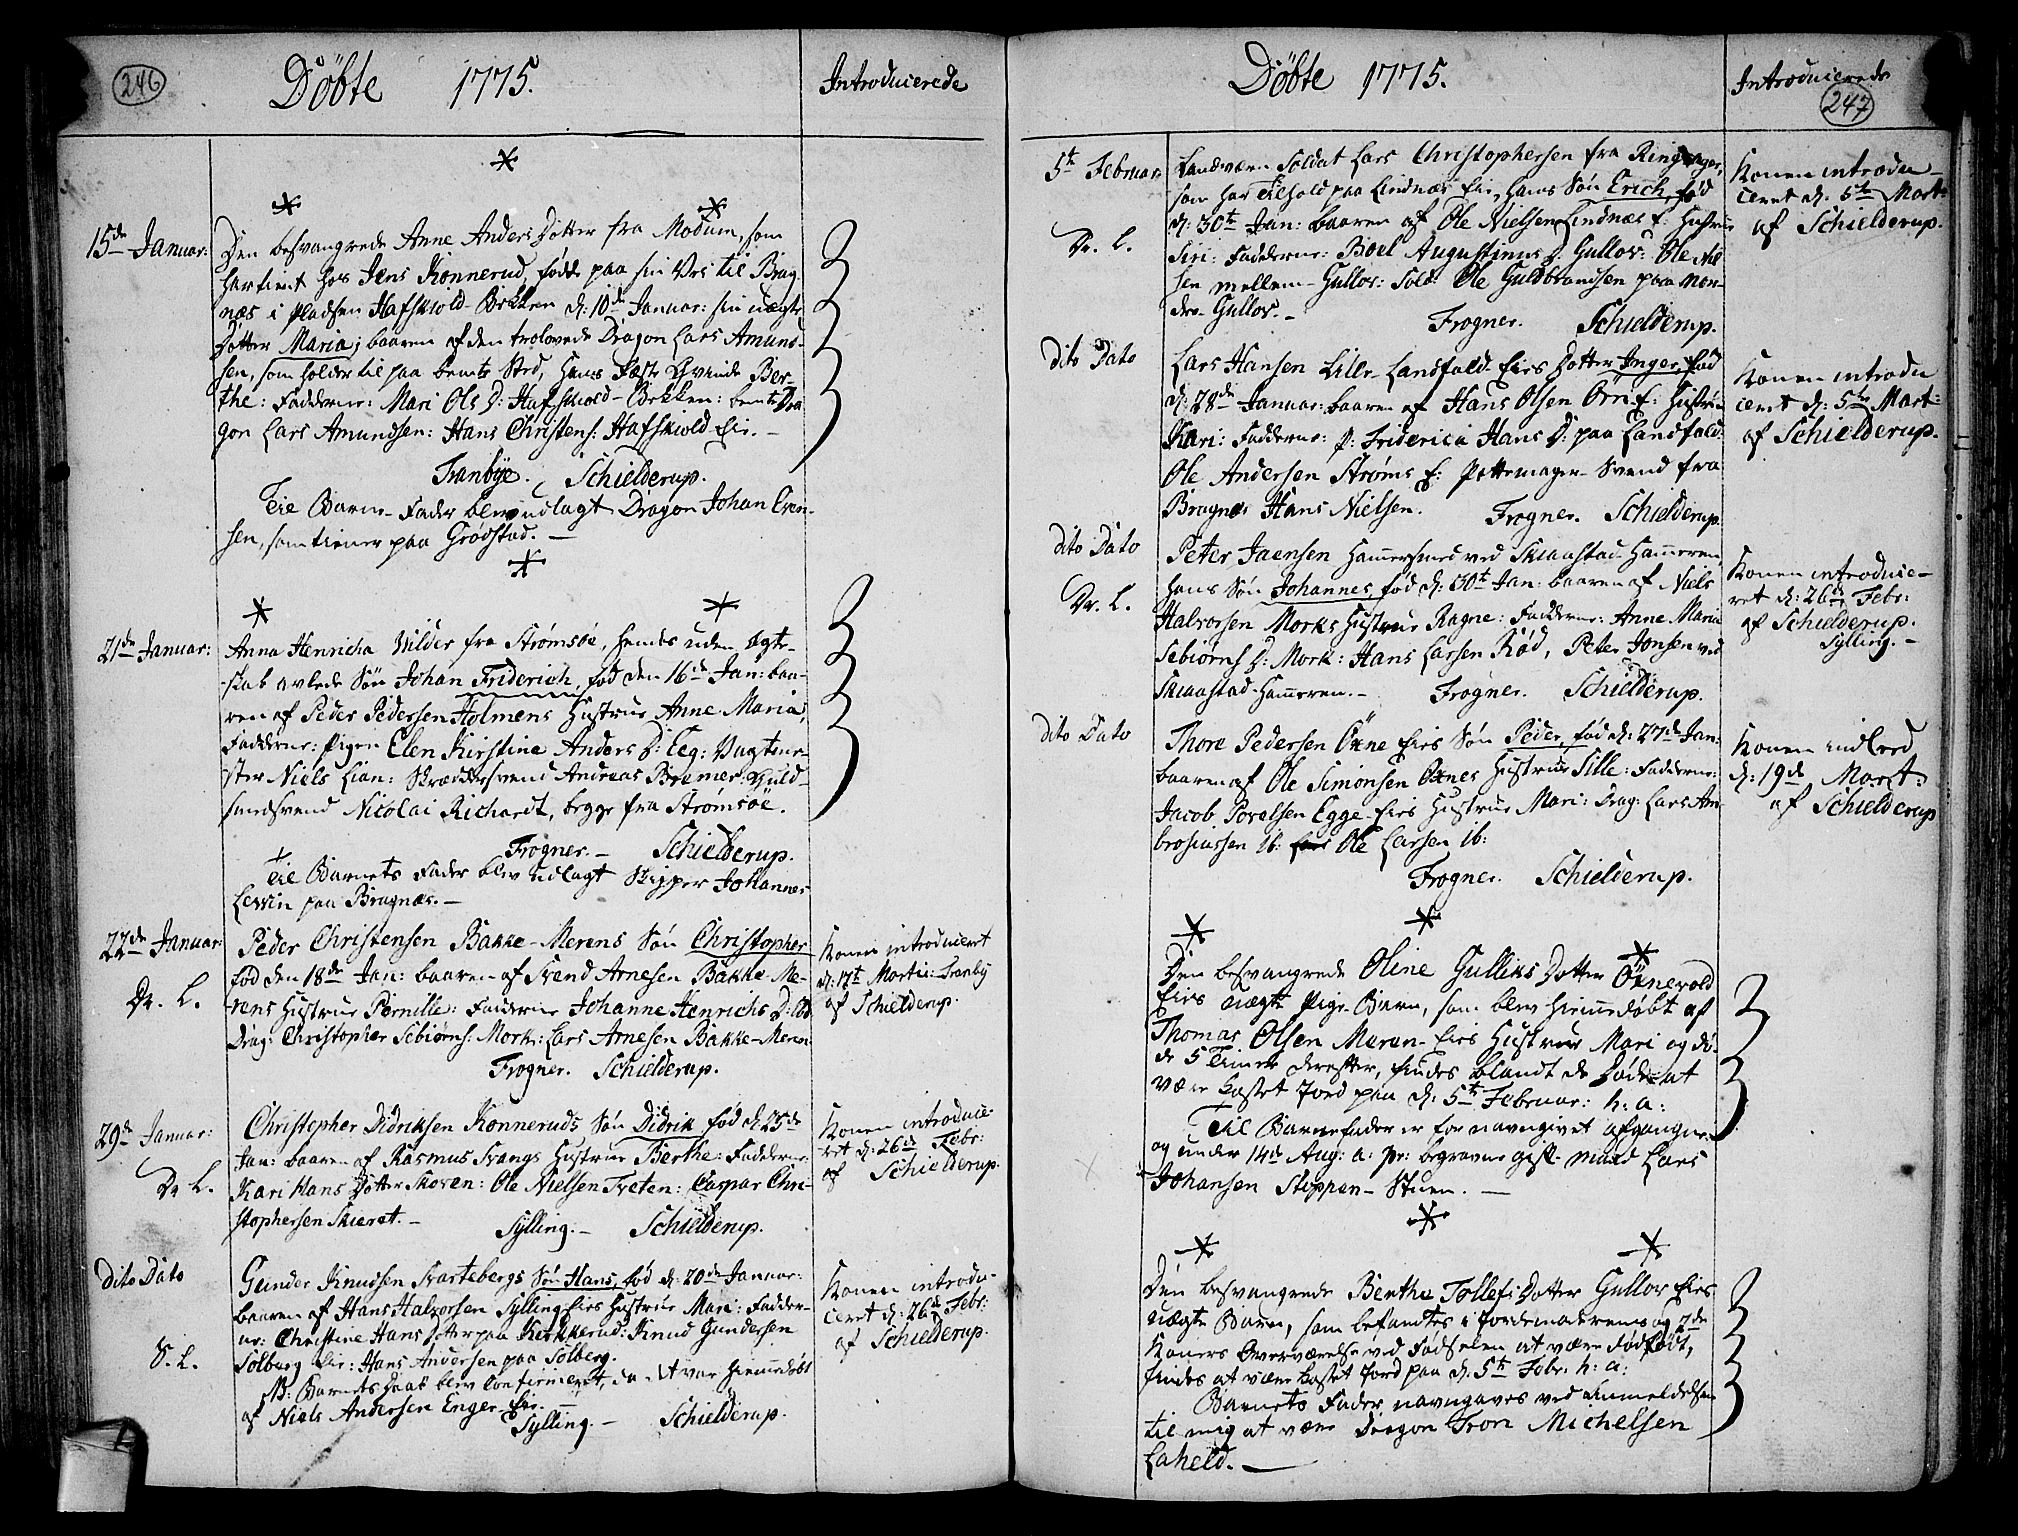 246
Döbte 1775.
Introducerede
15de Januar:
Den besvangrede Anne Anders Dotter fra Modum, som
har tient hos Jens Konnerud, födte paa sin Vei til Brag-
næs i Pladsen Hafskiold-Bekken d: 10de Januar: sin uægte
Dotter Maria; baaren af den trolovede Dragon Lars Amund-
sen, som holder til paa bemte Sted, hans Fæste Qvinde Ber-
the: Fadderne: Mari Ols D: Hafskiold-Bekken: bemte Dra-
gon Lars Amundsen: Hans Christens: Hafskiold Eir. -
Tranbye. Schielderup.
Til Barne-Fader blev udlagt Dragon Johan Even-
sen, som tiener paa Grödstad. -
21de Januar:
Anna Henricha Vilder fra Strömsöe, hendes uden Ægte-
skab avlede Sön Johan Friderich, föd den 16de Jan: baa-
ren af Peder Pedersen Holmens Hustrue Anne Maria,
Fadderne: Pigen Elen Kirstine Anders D: Eeg: Vagtme-
ster Niels Lian: Skræddersvend Andreas Bremer: Guld-
smedsvend Nicolai Richardt, begge fra Strömsöe.
Frogner. - Schielderup.
Til Barnets Fader blev udlagt Skipper Johannes
Levin paa Bragnæs. -
22de Januar:
Dr. L.
Peder Christensen Bakke-Merens Sön Christopher
föd den 18de Jan: baaren af Svend Arnesen Bakke-Me-
rens Hustrue Pernille: Fadderne Johanne Henrichs D: ibd
Drag: Christopher Sebiörns: Mork: Lars Arnesen Bakke-Meren:
Frogner. Schielderup.
Konen introduceret
d: 17t Martii: Tranby
af Schielderup.
29de Januar:
Dr L.
Christopher Didriksen Konneruds Sön Didrik föd d: 25de
Jan: baaren af Rasmus Svangs Hustrue Berthe: Fadderne
Kari Hans Dotter Skoren: Ole Nielsen Tveten: Caspar Chri-
stophersen Skieret. -
Sylling. - Schielderup.
Konen introduce-
ret d: 26de Febr:
af Schielderup.
Dito Dato
S. L.
Gunder Knudsen Svartebergs Sön Hans, föd d: 20de Januar:
baaren af Hans Halvorsen Sylling Eiers Hustrue Mari: Fadder-
ne: Christine Hans Dotter paa Kiekkerud: Knud Gundersen
Solberg Eir: Hans Andersen paa Solberg.
NB: Barnets Daab blev Confirmeret, da det var hiemmedöbt
af Niels Andersen Enger-Eir.
Sylling. - Schielderup.
Konen introdu-
ceret d: 26de Febr:
af Schielderup.
247
Döbte 1775.
Introducerede
5te Februar:
Dr. L.
Landværn Soldat Lars Christophersen fra Ringeriger,
som har Tilhold paa Lindnæs Eir, hans Sön Erich, föd
d: 30t Jan: baaren af Ole Nielsen Lindnæs E: Hustrue
Siri: Fadderne: Boel Augustinus D: Gullov: Ole Niel-
sen mellem-Gullov: Sold: Ole Guldbrandsen paa Nor-
dre-Gullov. -
Frogner. Schielderup.
Konen introdu-
ceret d: 5te Mart:
af Schielderup.
dito Dato
Lars Hansen Lille-Landfald-Eiers Dotter Inger, föd
d: 28de Januar: baaren af Hans Olsen Örn E: Hustrue
Kari: Fadderne: P: Friderica Hans D: paa Landfald:
Ole Andersen Ströms E: Pottemager-Svend fra
Bragnæs Hans Nielsen.
Frogner. Schielderup.
Konen introdu
ceret d: 5te Mart:
af Schielderup.
dito Dato
Dr. L.
Peter Jaensen Hammersmed ved Skiaastad-Hammeren,
hans Sön Johannes, föd d: 30t Jan: baaren af Niels
Halvorsen Morks Hustrue Ragne: Fadderne: Anne Maria
Sebiörns D: Mork: Hans Larsen Röd, Peter Jonsen ved
Skiaastad-Hammeren. -
Frogner. Schielderup.
Konen introduce-
ret d: 26de Febr:
af Schielderup.
Sylling. -
dito Dato
Thore Pedersen Öxne Eiers Sön Peder, föd d: 27de Jan:
baaren af Ole Simonsen Öxnes Hustrue Sille: Fadderne:
Jacob Povelsen Egge-Eiers Hustrue Mari: Drag: Lars Am-
brosiussen ib: Ole Larsen ib:
Frogner. Schielderup.
Konen indled
d: 19de Mart:
af Schielderup
Den besvangrede Oline Gulliks Dotter Öxnevold
Eiers uægte Pige-Barn, som blev hiemmedöbt af
Thomas Olsen Meren-Eiers Hustrue Mari og dö-
de 5 Timer derefter, findes blandt de Döde at
være kastet Jord paa d: 5te Februar: h: a:
Til Barnefader er for navngivet afgangne
og under 14de Aug: a: pr: begravne gift-mand Lars
Johansen Stoppen-Stuen. -
Den besvangrede Berthe Tollefs Dotter Gullov Eiers
uægte Barn, som befandtes i Jordemoderens og 2de
Koners Overværelse ved Födselen at være dödfödt,
findes at være kastet Jord paa d: 5te Febr: h: a:
Barnets Fader navngaves ved Anmeldelsen
til mig at være Dragon Tron Michelsen
Laheld. -